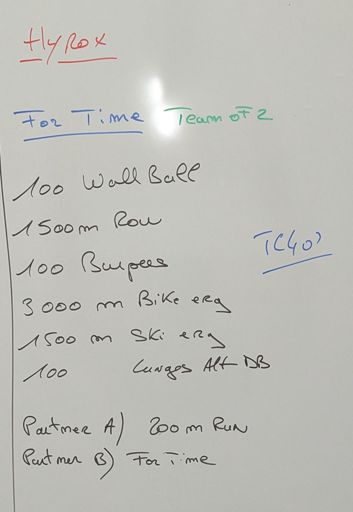 Hyrox
For Time Team of 2
100 Wall Ball
1500m Row
TC 40'
100 Burpees
3000 m Bike erg
1500 m Ski erg
100 Lunges Alt DB
Partner A) 200 m Run
Partner B) For Time